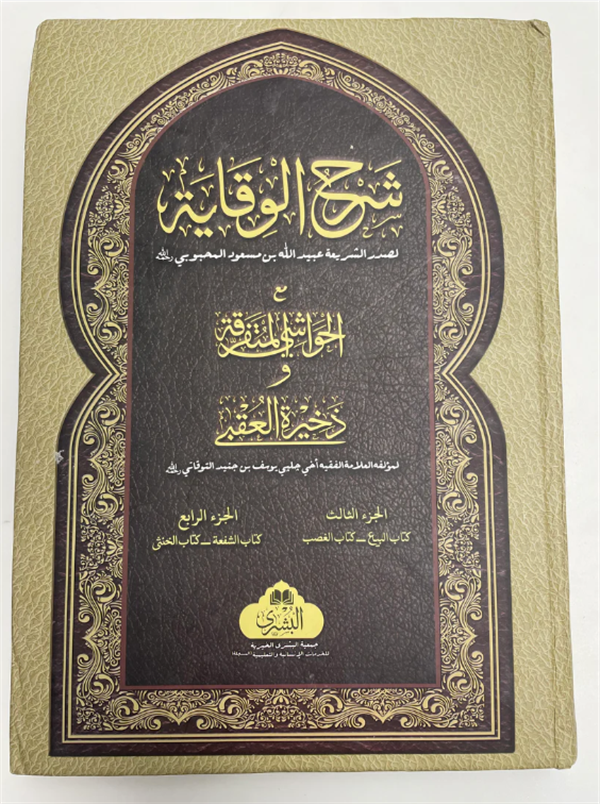 شرح الوقاية
لصدر الشريعة عبيد الله بن مسعود المحبوبي رحمه الله
مع
الحواشي المتفرقة
و
ذخيرة العقبى
لمؤلفه العلامة الفقيه أخي جلبي يوسف بن جنيد التوقاتي رحمه الله
الجزء الثالث
كتاب البيع – كتاب الغصب
الجزء الرابع
كتاب الشفعة – كتاب الخنثى
البشرى
جمعية البشرى الخيرية
للخدمات الإنسانية والتعليمية